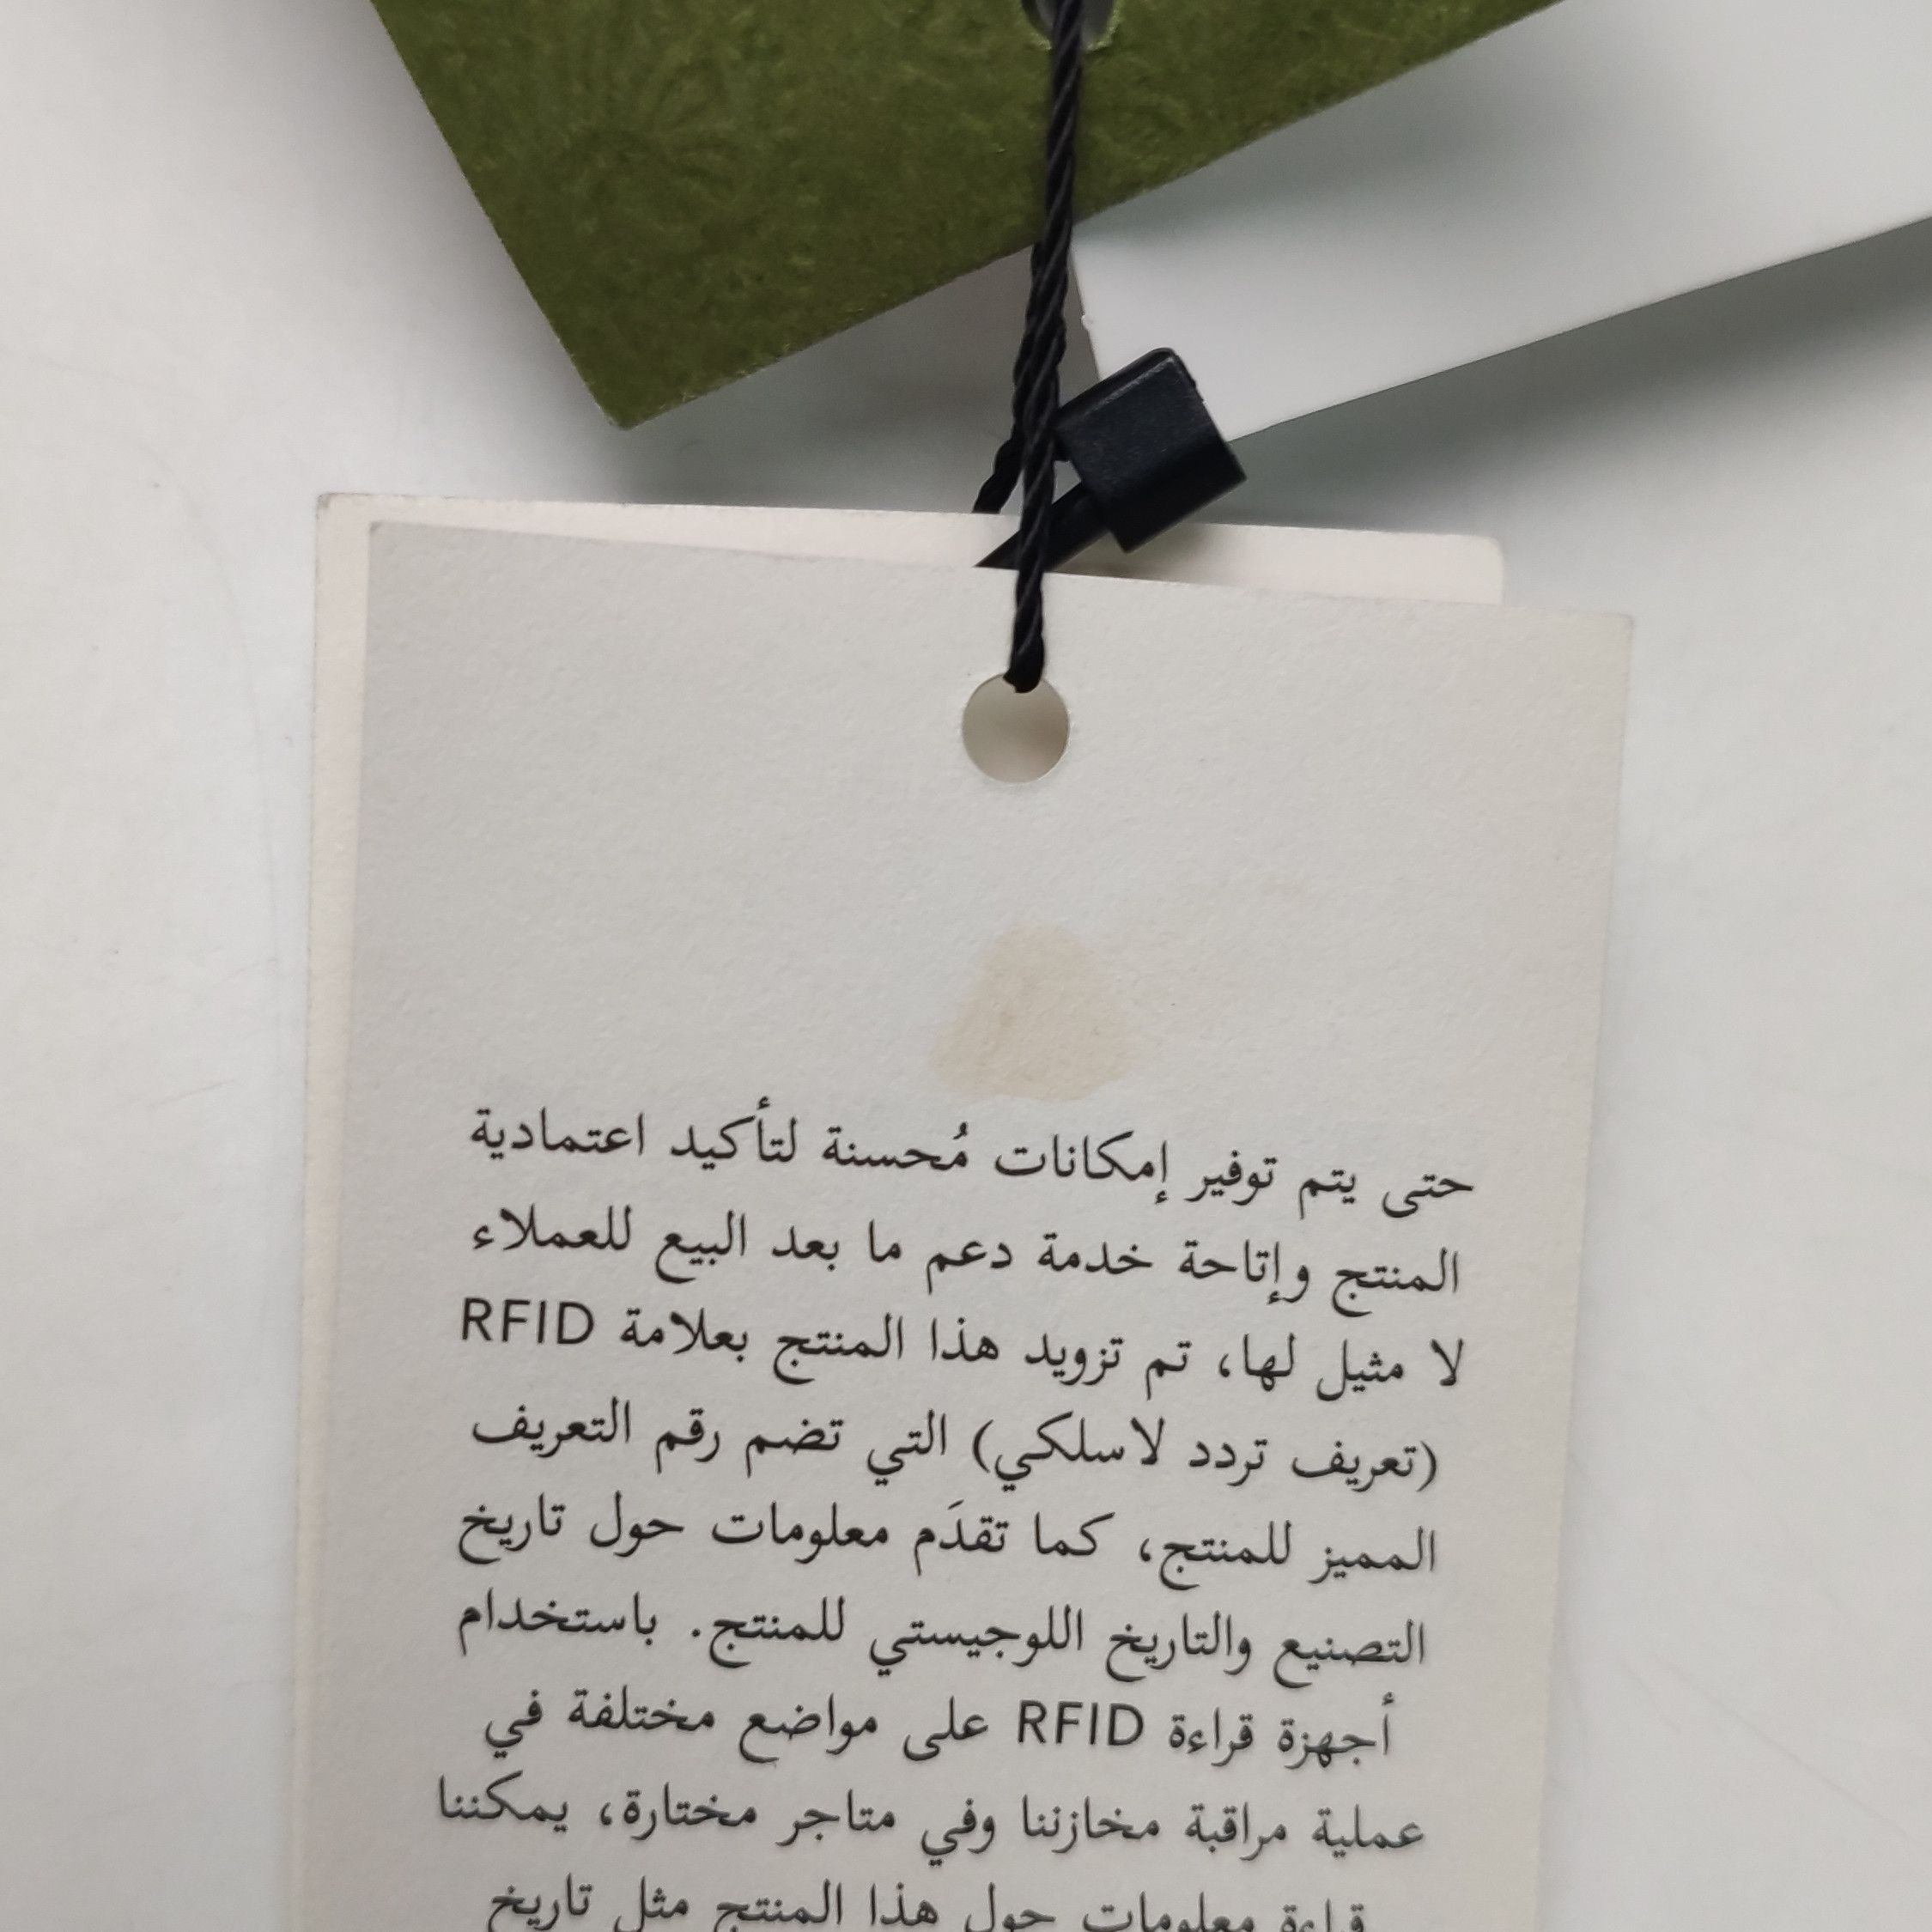 حتى يتم توفير إمكانات مُحسنة لتأكيد اعتمادية
المنتج وإتاحة خدمة دعم ما بعد البيع للعملاء
لا مثيل لها، تم تزويد هذا المنتج بعلامة RFID
(تعريف تردد لاسلكي) التي تضم رقم التعريف
المميز للمنتج، كما تقدَم معلومات حول تاريخ
التصنيع والتاريخ اللوجيستي للمنتج. باستخدام
أجهزة قراءة RFID على مواضع مختلفة في
عملية مراقبة مخازننا وفي متاجر مختارة، يمكننا
قراءة معلومات حول هذا المنتج مثل تاريخ